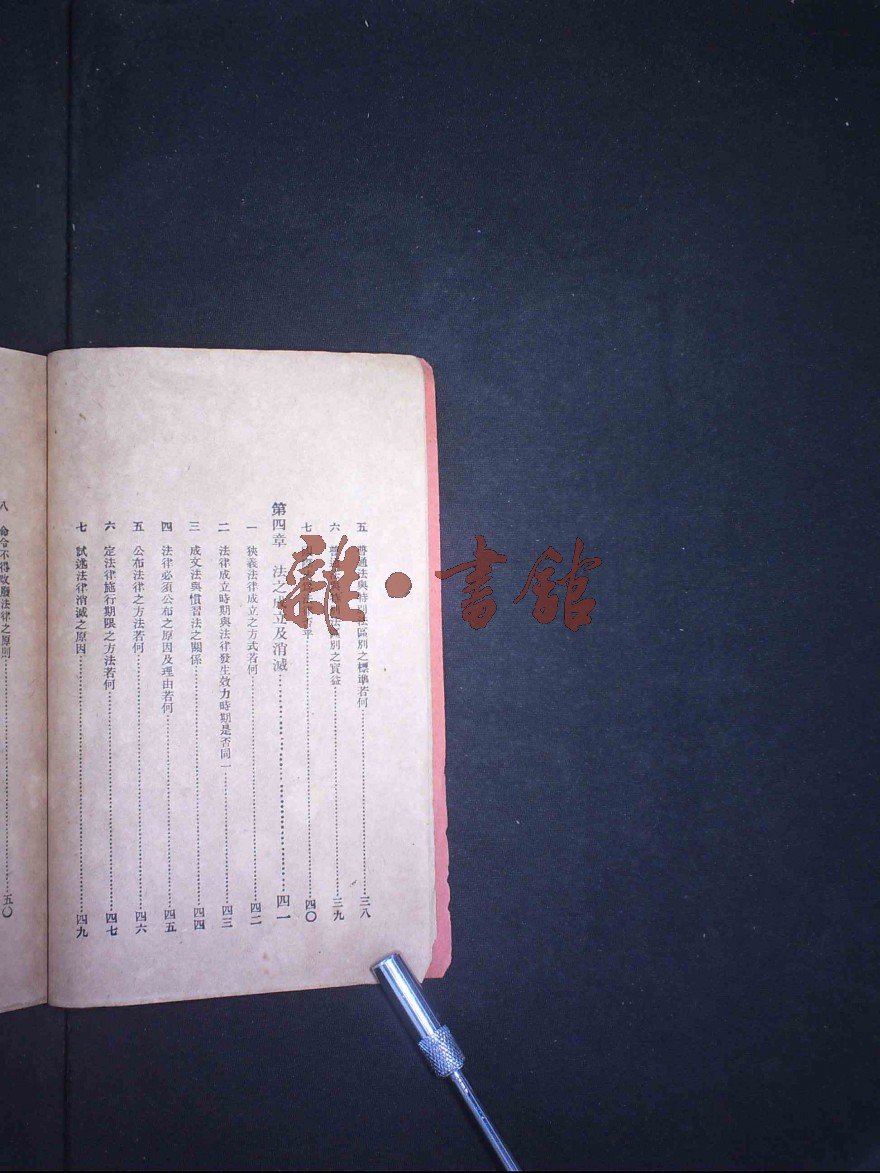 五 普通法與特別法區別之標準若何 三八
六 別之實益 三九
七 四〇
第四章 法之成立及消滅 四一
一 狹義法律成立之方式若何 四二
二 法律成立時期與法律發生效力時期是否同一 四三
三 成文法與慣習法之關係 四四
四 法律必須公布之原因及理由若何 四五
五 公布法律之方法若何 四六
六 定法律施行期限之方法若何 四七
七 試述法律消滅之原因 四九
八 命令不得改廢法律之原則 五〇
雜·書館